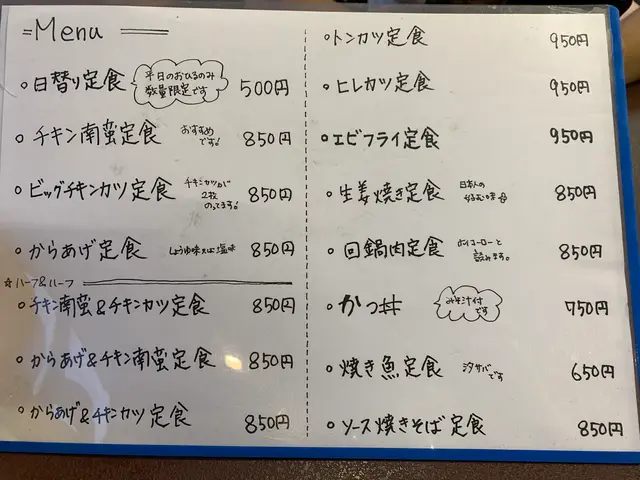 Menu
日替り定食 平日のおひるのみ 数量限定です 500円
チキン南蛮定食 おすすめです! 850円
ビッグチキンカツ定食 チキンカツが2枚のってます! 850円
からあげ定食 しょうゆ味又は塩味 850円
☆ハーフ&ハーフ
チキン南蛮&チキンカツ定食 850円
からあげ&チキン南蛮定食 850円
からあげ&チキンカツ定食 850円
トンカツ定食 950円
ヒレカツ定食 950円
エビフライ定食 950円
生姜焼き定食 日本人の好む味 850円
回鍋肉定食 ホイコーローと読みます。 850円
かつ丼 みそ汁付です 750円
焼き魚定食 シタサバです 650円
ソース焼きそば定食 850円